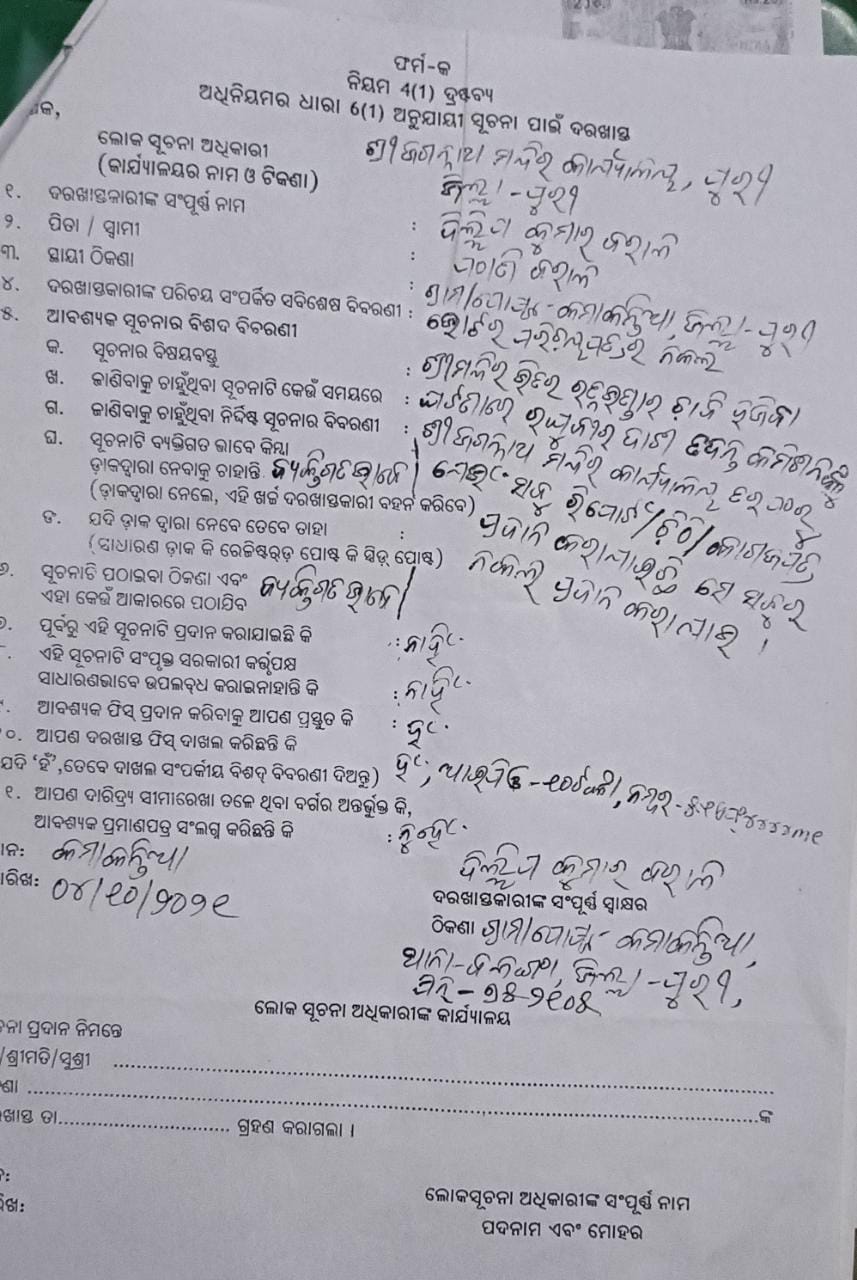 ଫର୍ମ-କ
ନିୟମ 4(1) ଦ୍ରଷ୍ଟବ୍ୟ
ଅଧିନିୟମର ଧାରା 6(1) ଅନୁଯାୟୀ ସୂଚନା ପାଇଁ ଦରଖାସ୍ତ
ଲୋକ ସୂଚନା ଅଧିକାରୀ ଶ୍ରୀ ଜଗନ୍ନାଥ ମନ୍ଦିର କାର୍ଯ୍ୟାଳୟ, ପୁରୀ
(କାର୍ଯ୍ୟାଳୟର ନାମ ଓ ଠିକଣା) ଜିଲ୍ଲା-ପୁରୀ
୧. ଦରଖାସ୍ତକାରୀଙ୍କ ସଂପୂର୍ଣ୍ଣ ନାମ : ଦିଲ୍ଲିପ କୁମାର ବରାଳ
୨. ପିତା / ସ୍ୱାମୀ : ବରାଳ
୩. ସ୍ଥାୟୀ ଠିକଣା : ଗ୍ରାମ/ପୋଷ୍ଟ-କମାକନ୍ତିଆ, ଜିଲ୍ଲା-ପୁରୀ
୪. ଦରଖାସ୍ତକାରୀଙ୍କ ପରିଚୟ ସଂପର୍କିତ ସବିଶେଷ ବିବରଣୀ : ଭୋଟର ପରିଚୟପତ୍ରର ନକଲ
୫. ଆବଶ୍ୟକ ସୂଚନାର ବିଶଦ ବିବରଣୀ
କ. ସୂଚନାର ବିଷୟବସ୍ତୁ : ଶ୍ରୀମନ୍ଦିର ଭିତର ରତ୍ନଭଣ୍ଡାର ଚାବି ହଜିବା
ଖ. ଜାଣିବାକୁ ଚାହୁଁଥିବା ସୂଚନାଟି କେଉଁ ସମୟରେ : ରଘୁବୀର ଦାଶ
ଗ. ଜାଣିବାକୁ ଚାହୁଁଥିବା ନିର୍ଦ୍ଦିଷ୍ଟ ସୂଚନାର ବିବରଣୀ : ଶ୍ରୀ ଜଗନ୍ନାଥ ମନ୍ଦିର କାର୍ଯ୍ୟାଳୟ
ଘ. ସୂଚନାଟି ବ୍ୟକ୍ତିଗତ ଭାବେ କିମ୍ବା
ଡ଼ାକଦ୍ୱାରା ନେବାକୁ ଚାହାନ୍ତି ବ୍ୟକ୍ତିଗତ ଭାବେ । ସବୁ ରିପୋର୍ଟ/ଚିଠି/କାଗଜପତ୍ର
(ଡ଼ାକଦ୍ୱାରା ନେଲେ, ଏହି ଖର୍ଚ୍ଚ ଦରଖାସ୍ତକାରୀ ବହନ କରିବେ)
ଙ. ଯଦି ଡ଼ାକ ଦ୍ୱାରା ନେବେ ତେବେ ତାହା : ପ୍ରଦାନ କରାଯାଇଛି ସେ ସବୁର
(ସାଧାରଣ ଡ଼ାକ କି ରେଜିଷ୍ଟର୍ଡ଼ ପୋଷ୍ଟ କି ସ୍ପିଡ୍ ପୋଷ୍ଟ) ନକଲ ପ୍ରଦାନ କରାଯାଉ ।
୬. ସୂଚନାଟି ପଠାଇବା ଠିକଣା ଏବଂ
ଏହା କେଉଁ ଆକାରରେ ପଠାଯିବ ବ୍ୟକ୍ତିଗତ ଭାବେ ।
ପୂର୍ବରୁ ଏହି ସୂଚନାଟି ପ୍ରଦାନ କରାଯାଇଛି କି : ନାହିଁ
ଏହି ସୂଚନାଟି ସଂପୃକ୍ତ ସରକାରୀ କର୍ତ୍ତୃପକ୍ଷ
ସାଧାରଣଭାବେ ଉପଲବ୍ଧ କରାଇନାହାନ୍ତି କି : ନାହିଁ
ଆବଶ୍ୟକ ଫିସ୍ ପ୍ରଦାନ କରିବାକୁ ଆପଣ ପ୍ରସ୍ତୁତ କି : ହଁ
୦. ଆପଣ ଦରଖାସ୍ତ ଫିସ୍ ଦାଖଲ କରିଛନ୍ତି କି
ଯଦି ‘ହଁ’, ତେବେ ଦାଖଲ ସଂପର୍କୀୟ ବିଶଦ୍ ବିବରଣୀ ଦିଅନ୍ତୁ) ହଁ,
୧. ଆପଣ ଦାରିଦ୍ର୍ୟ ସୀମାରେଖା ତଳେ ଥିବା ବର୍ଗର ଅନ୍ତର୍ଭୁକ୍ତ କି,
ଆବଶ୍ୟକ ପ୍ରମାଣପତ୍ର ସଂଲଗ୍ନ କରିଛନ୍ତି କି : ନୁହେଁ
ନ: କମାକନ୍ତିଆ
ରିଖ: ୦୪/୧୦/୨୦୨୧
ଦିଲ୍ଲିପ କୁମାର ବରାଳ
ଦରଖାସ୍ତକାରୀଙ୍କ ସଂପୂର୍ଣ୍ଣ ସ୍ୱାକ୍ଷର
ଠିକଣା ଗ୍ରାମ/ପୋଷ୍ଟ-କମାକନ୍ତିଆ,
ଥାନା- ଜିଲ୍ଲା-ପୁରୀ,
ପିନ୍-୭୫୨୧୦୪
ଲୋକ ସୂଚନା ଅଧିକାରୀଙ୍କ କାର୍ଯ୍ୟାଳୟ
ପ୍ରଦାନ ନିମନ୍ତେ
/ଶ୍ରୀମତି/ସୁଶ୍ରୀ
ଙ୍କ
ଖାସ୍ତ ତା ଗ୍ରହଣ କରାଗଲା ।
ଲୋକସୂଚନା ଅଧିକାରୀଙ୍କ ସଂପୂର୍ଣ୍ଣ ନାମ
ପଦନାମ ଏବଂ ମୋହର